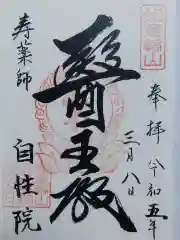 奉拝 令和五年
三月八日
醫王殿
寿薬師
自性院